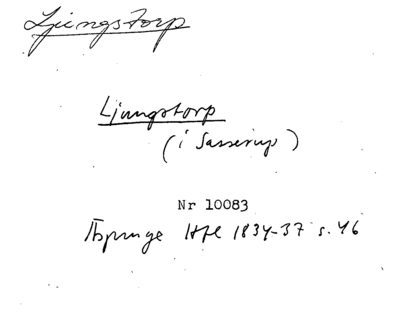 Ljungstorp
Ljungstorp
(i Sasserup)
Nr 10083
Asprunge Hfl 1834-37 s. 46